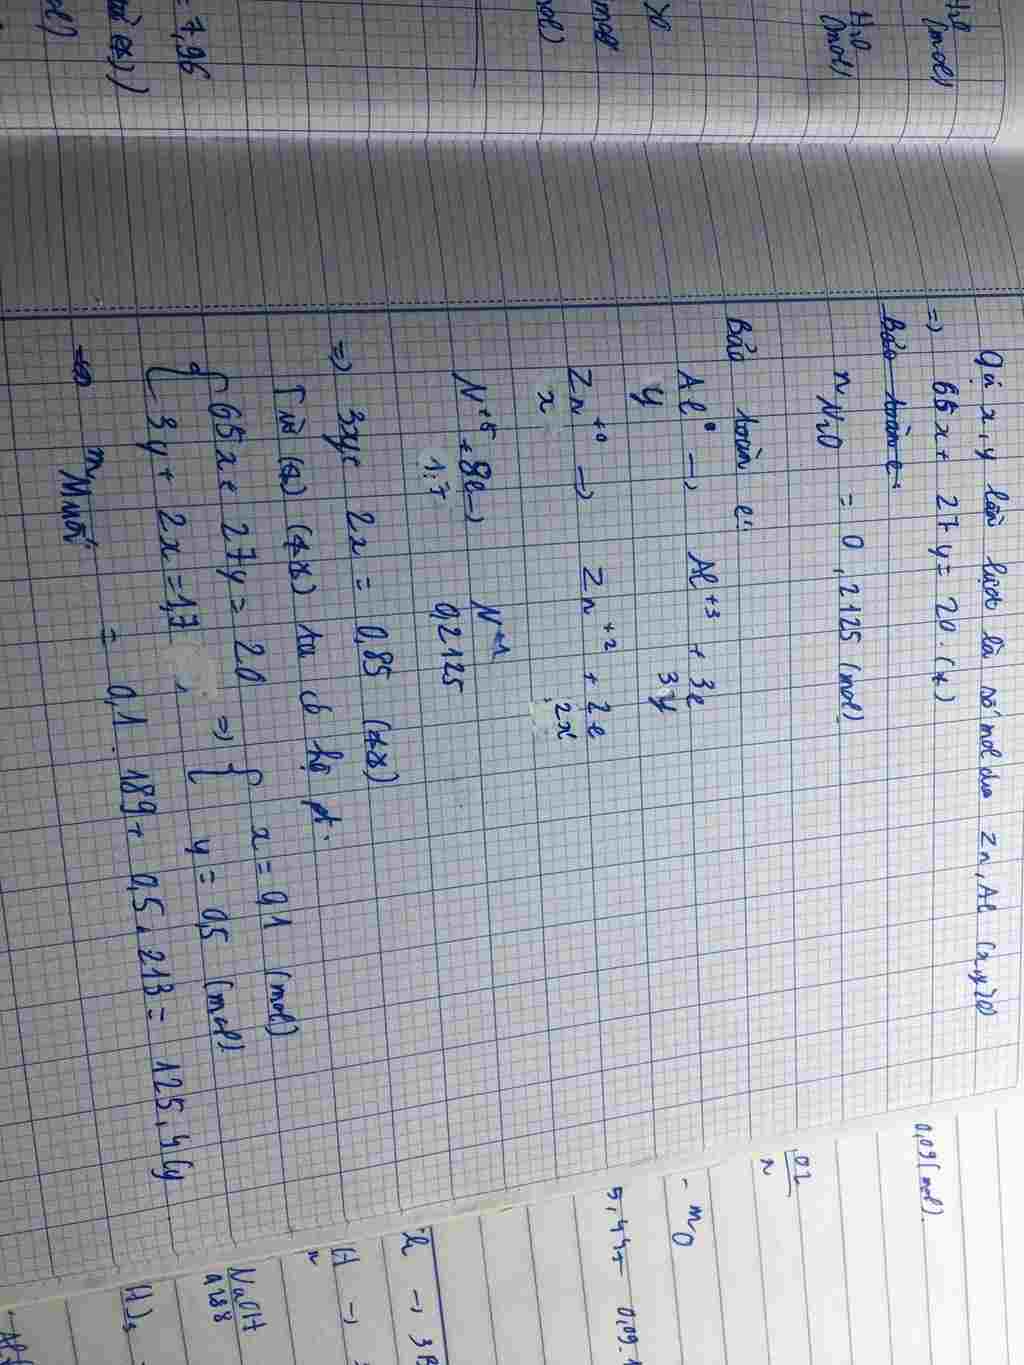 Gọi x, y lần lượt là số mol của Zn, Al (x,y>0)
=> 65x + 27y = 20 (*)
Bảo toàn e
nN2O = 0,2125 (mol)
Bảo toàn e:
Al⁰ → Al⁺³ + 3e
y 3y
Zn⁺⁰ → Zn⁺² + 2e
x 2x
N⁺⁵ + 8e → N⁺¹
1,7 0,2125
=> 3y + 2x = 0,85 (**)
Từ (*) (**) ta có hệ pt:
{ 65x + 27y = 20
3y + 2x = 1,7
=> { x = 0,1 (mol)
y = 0,5 (mol)
m muối = 0,1 . 189 + 0,5 . 213 = 125,4 g
H2O
(mol)
H2O
(mol)
= 7,96
0,09 (mol).
0,2
n
- mO
5,445 0,09.
H →
n
NaOH
0,288
H)3